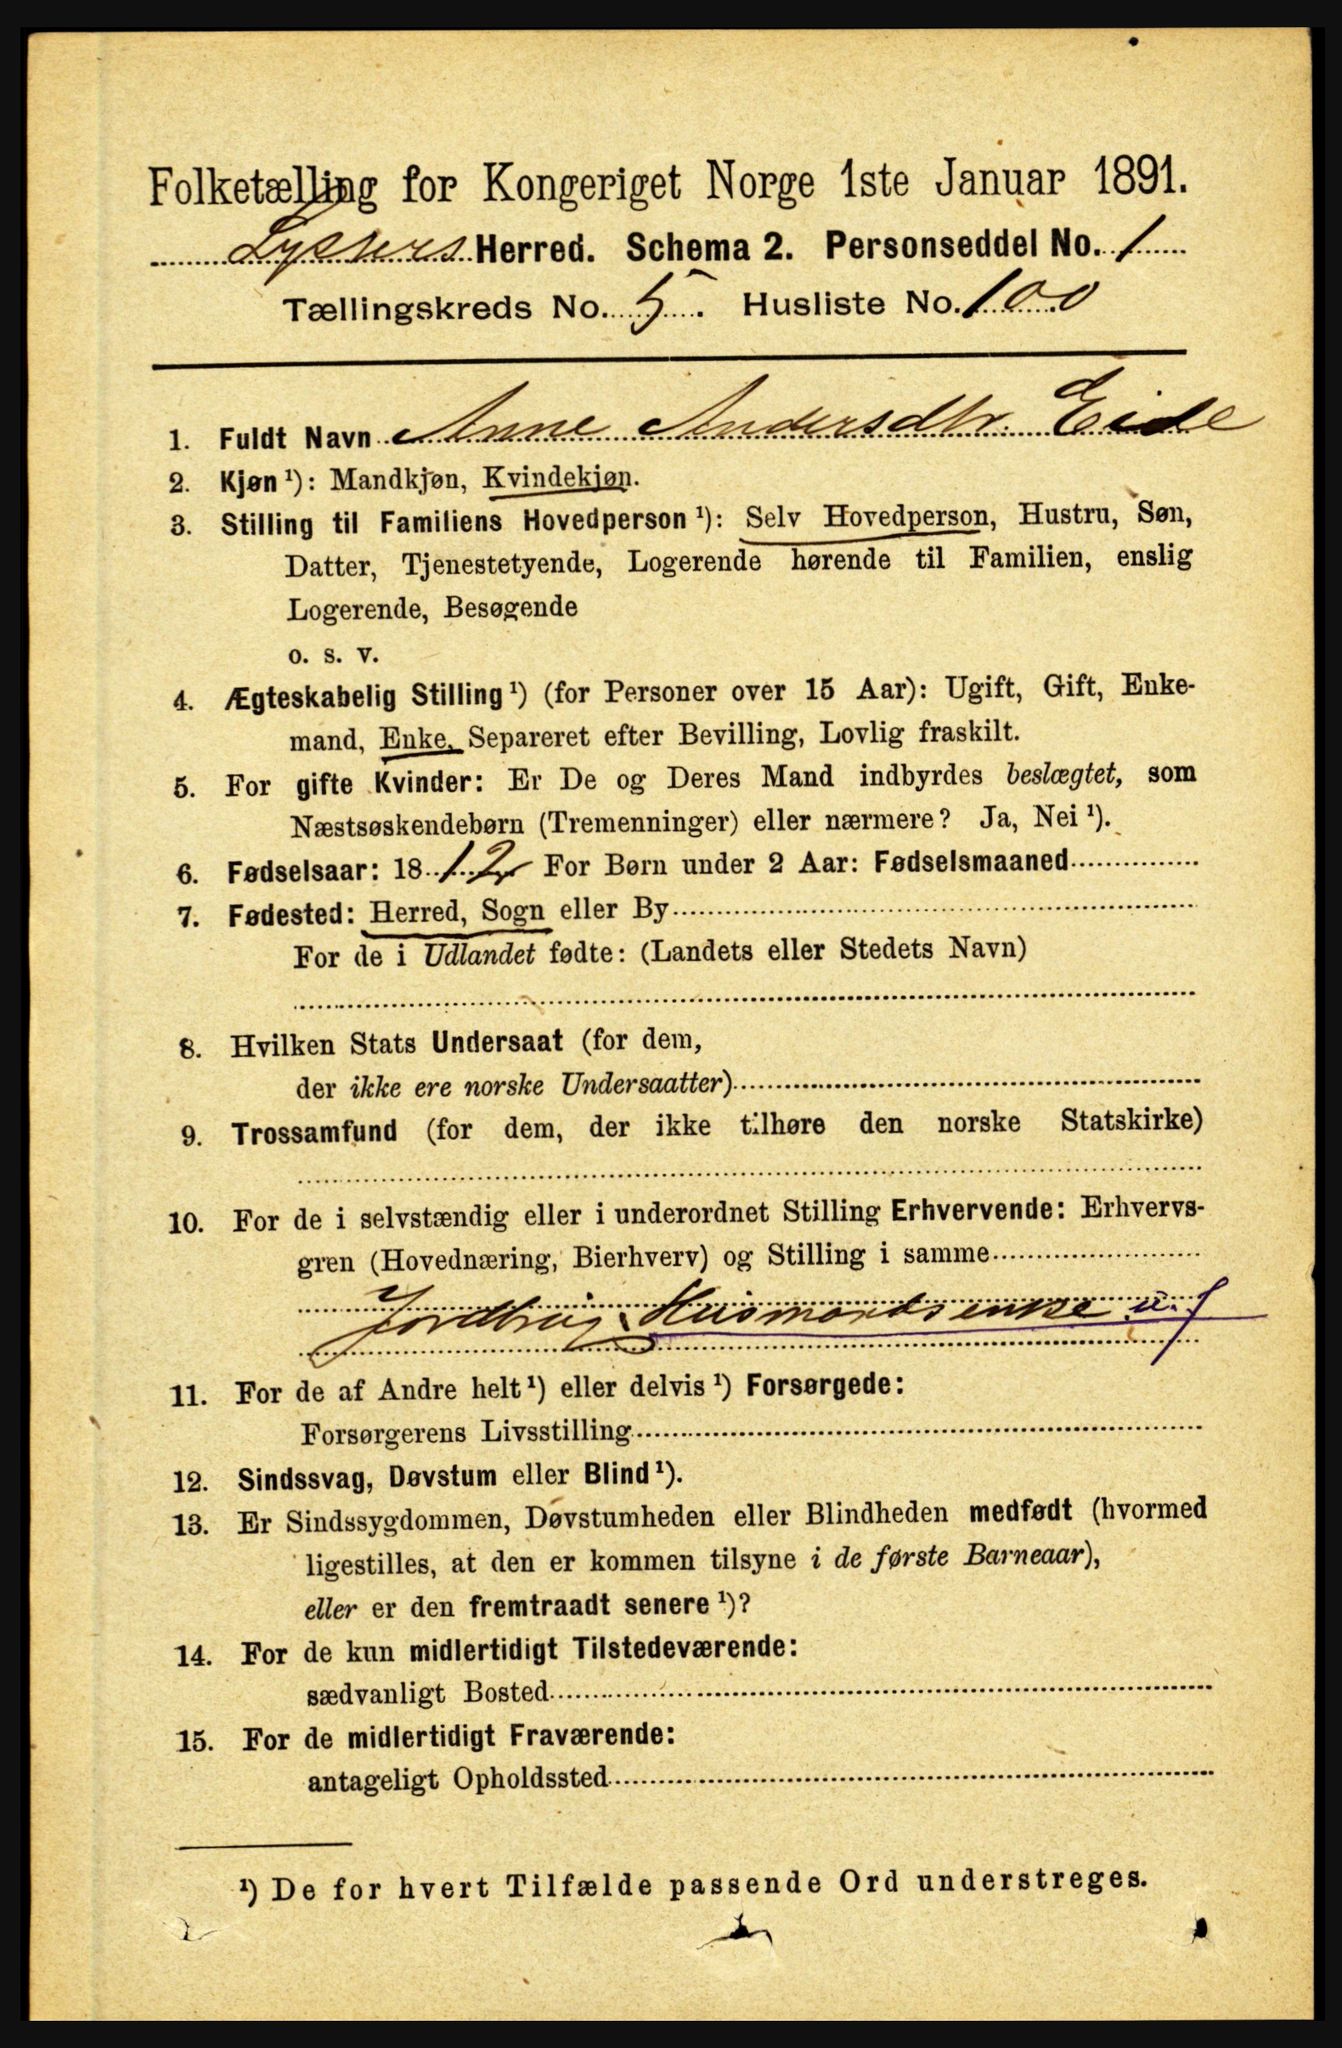 Folketælling for Kongeriget Norge 1ste Januar 1891.
Lysters Herred. Schema 2. Personseddel No. 1
Tællingskreds No. 5. Husliste No. 100
1. Fuldt Navn Anne Andersdtr. Eide
2. Kjøn ¹): Mandkjøn, Kvindekjøn.
3. Stilling til Familiens Hovedperson ¹): Selv Hovedperson, Hustru, Søn,
Datter, Tjenestetyende, Logerende hørende til Familien, enslig
Logerende, Besøgende
o. s. v.
4. Ægteskabelig Stilling ¹) (for Personer over 15 Aar): Ugift, Gift, Enke-
mand, Enke, Separeret efter Bevilling, Lovlig fraskilt.
5. For gifte Kvinder: Er De og Deres Mand indbyrdes beslægtet, som
Næstsøskendebørn (Tremenninger) eller nærmere? Ja, Nei ¹).
6. Fødselsaar: 1812 For Børn under 2 Aar: Fødselsmaaned
7. Fødested: Herred, Sogn eller By
For de i Udlandet fødte: (Landets eller Stedets Navn)
8. Hvilken Stats Undersaat (for dem,
der ikke ere norske Undersaatter)
9. Trossamfund (for dem, der ikke tilhøre den norske Statskirke)
10. For de i selvstændig eller i underordnet Stilling Erhvervende: Erhvervs-
gren (Hovednæring, Bierhverv) og Stilling i samme
Jordbrug, Husmandsenke u. j
11. For de af Andre helt ¹) eller delvis ¹) Forsørgede:
Forsørgerens Livsstilling
12. Sindssvag, Døvstum eller Blind ¹).
13. Er Sindssygdommen, Døvstumheden eller Blindheden medfødt (hvormed
ligestilles, at den er kommen tilsyne i de første Barneaar),
eller er den fremtraadt senere ¹)?
14. For de kun midlertidigt Tilstedeværende:
sædvanligt Bosted
15. For de midlertidigt Fraværende:
antageligt Opholdssted
¹) De for hvert Tilfælde passende Ord understreges.